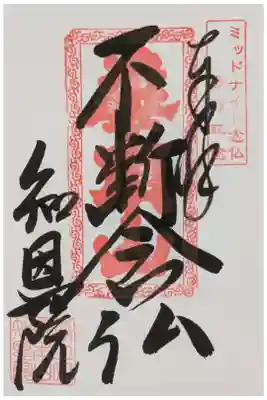 ミッドナイト念仏
奉拝
不断念仏
知恩院